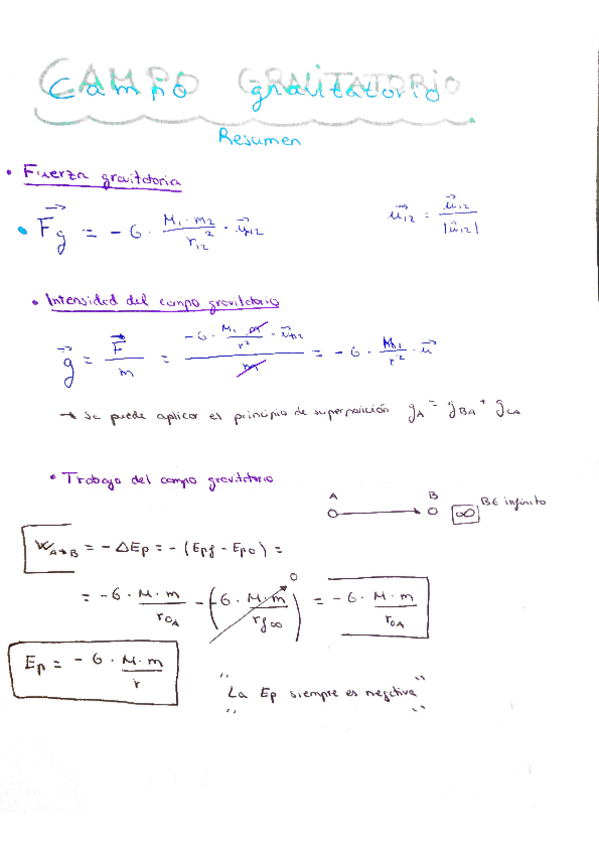 CAMPO GRAVITATORIO
Campo gravitatorio
Resumen
• Fuerza gravitatoria
• F⃗g = - G · M1 · m2 / r12² · u⃗12
u⃗12 = u⃗12 / |u⃗12|
• Intensidad del campo gravitatorio
g⃗ = F⃗ / m = - G · M1 · m / r² · u⃗12 / m = - G · M1 / r² · u⃗
→ Se puede aplicar el principio de superposición gA = gBA + gCA
• Trabajo del campo gravitatorio
A B
∞ B∈ infinito
WA→B = - ΔEp = - (Epf - Epo) =
= - G · M · m / roA - (G · M · m / rf∞) 0 = - G · M · m / roA
Ep = - G · M · m / r
"La Ep siempre es negativa"